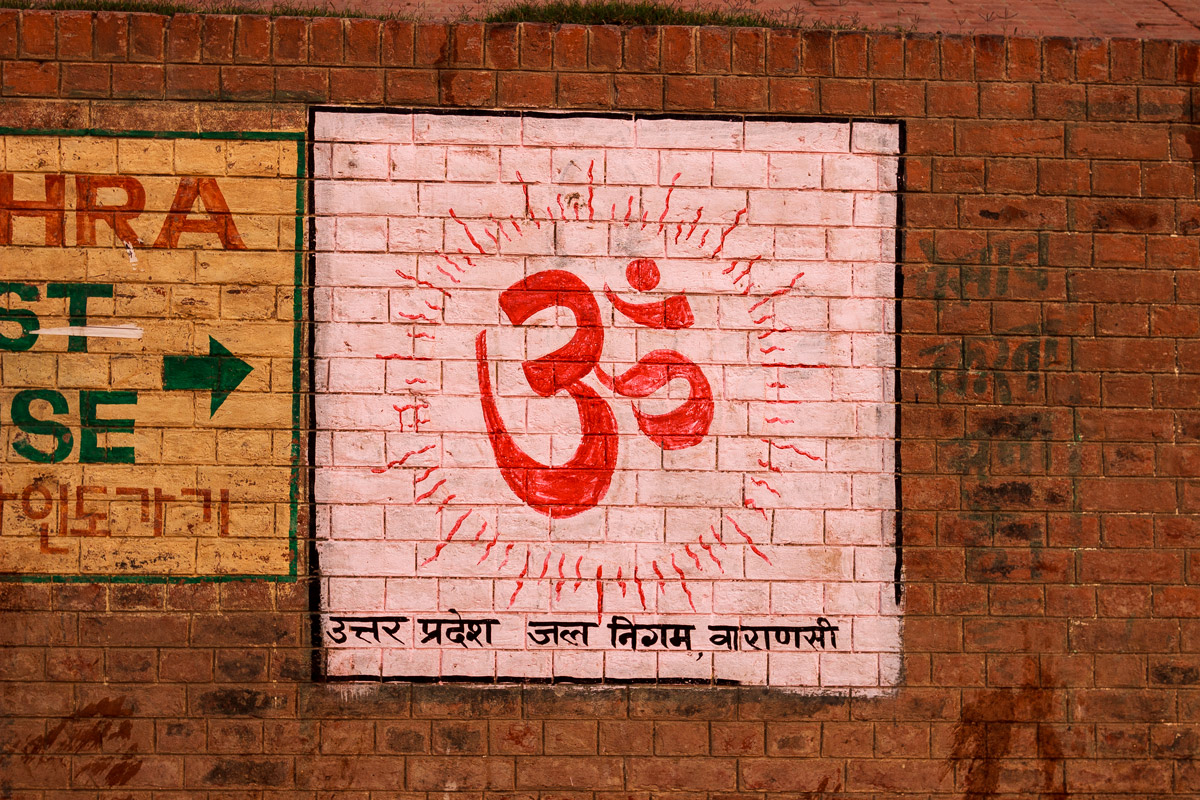 HRA
ST
SE
인도가기
ॐ
उत्तर प्रदेश जल निगम, वाराणसी